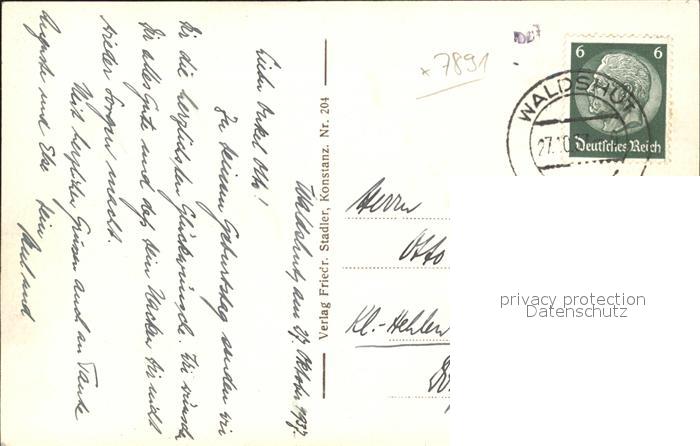 Waldshut, am 27. Oktober 1937.
Lieber Onkel Otto!
Zu deinem Geburtstag senden wir
Dir die herzlichsten Glückwünsche. Wir wünschen
Dir alles Gute und daß Dein Wacken Dir nicht
wieder Sorgen macht.
Mit herzlichen Grüßen auch an Tante
Auguste und Else Dein
Verlag Friedr. Stadler, Konstanz. Nr. 204
*7891
6 6
Deutsches Reich
WALDSHUT
27.10.37
Herrn
Otto
Kl.-Hehlen
privacy protection
Datenschutz